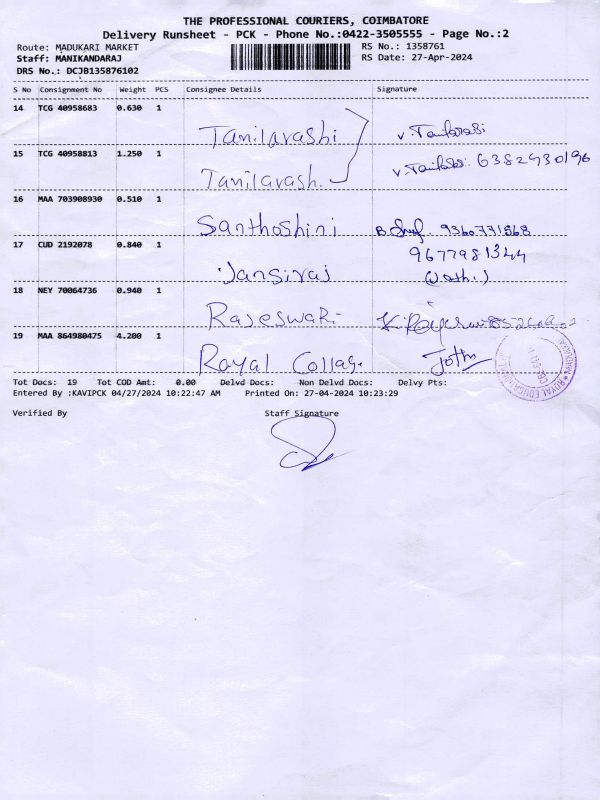 THE PROFESSIONAL COURIERS, COIMBATORE
Delivery Runsheet - PCK - Phone No.:0422-3505555 - Page No.:2
Route: MADUKARI MARKET RS No.: 1358761
Staff: MANIKANDARAJ RS Date: 27-Apr-2024
DRS No.: DCJB135876102
S No Consignment No Weight PCS Consignee Details Signature
14 TCG 40958683 0.630 1
Tanilarashi
15 TCG 40958813 1.250 1
Tanilarash. 6382930196
16 MAA 703908930 0.510 1
Santhoshini 9360771568
17 CUD 2192078 0.840 1 9677981344
Jansiraj
18 NEY 70064736 0.940 1
Rajeswari
19 MAA 864980475 4.200 1
Royal College
Tot Docs: 19 Tot COD Amt: 0.00 Delvd Docs: Non Delvd Docs: Delvy Pts:
Entered By :KAVIPCK 04/27/2024 10:22:47 AM Printed On: 27-04-2024 10:23:29
Verified By Staff Signature